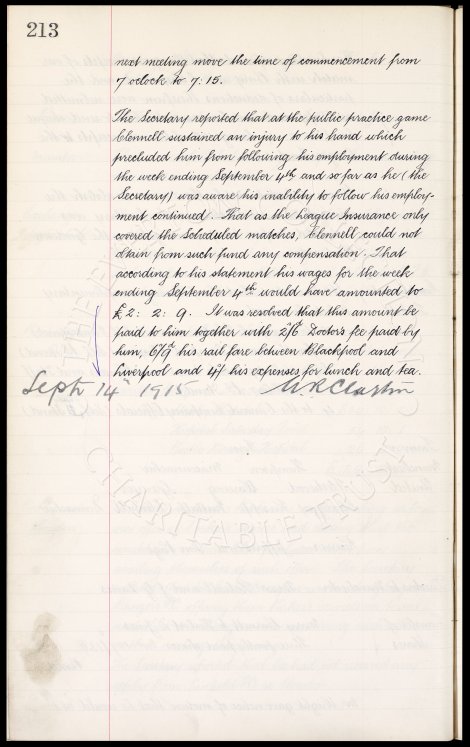 213
next meeting move the time of commencement from
7 oclock to 7.15.
The Secretary reported that at the public practice game
Clennell sustained an injury to his hand which
precluded him from following his employment during
the week ending September 4th and so far as he (the
Secretary) was aware his inability to follow his employ-
ment continued. That as the League Insurance only
covered the Scheduled matches, Clennell could not
obtain from such fund any compensation. That
according to his statement his wages for the week
ending September 4th would have amounted to
£2: 2: 9. It was resolved that this amount be
paid to him together with 2/6 Doctor's fee paid by
him, 6/9 his rail fare between Blackpool and
Liverpool and 4/- his expenses for lunch and tea.
Sept 14th 1915 W.R. Clayton
CHARITABLE TRUST